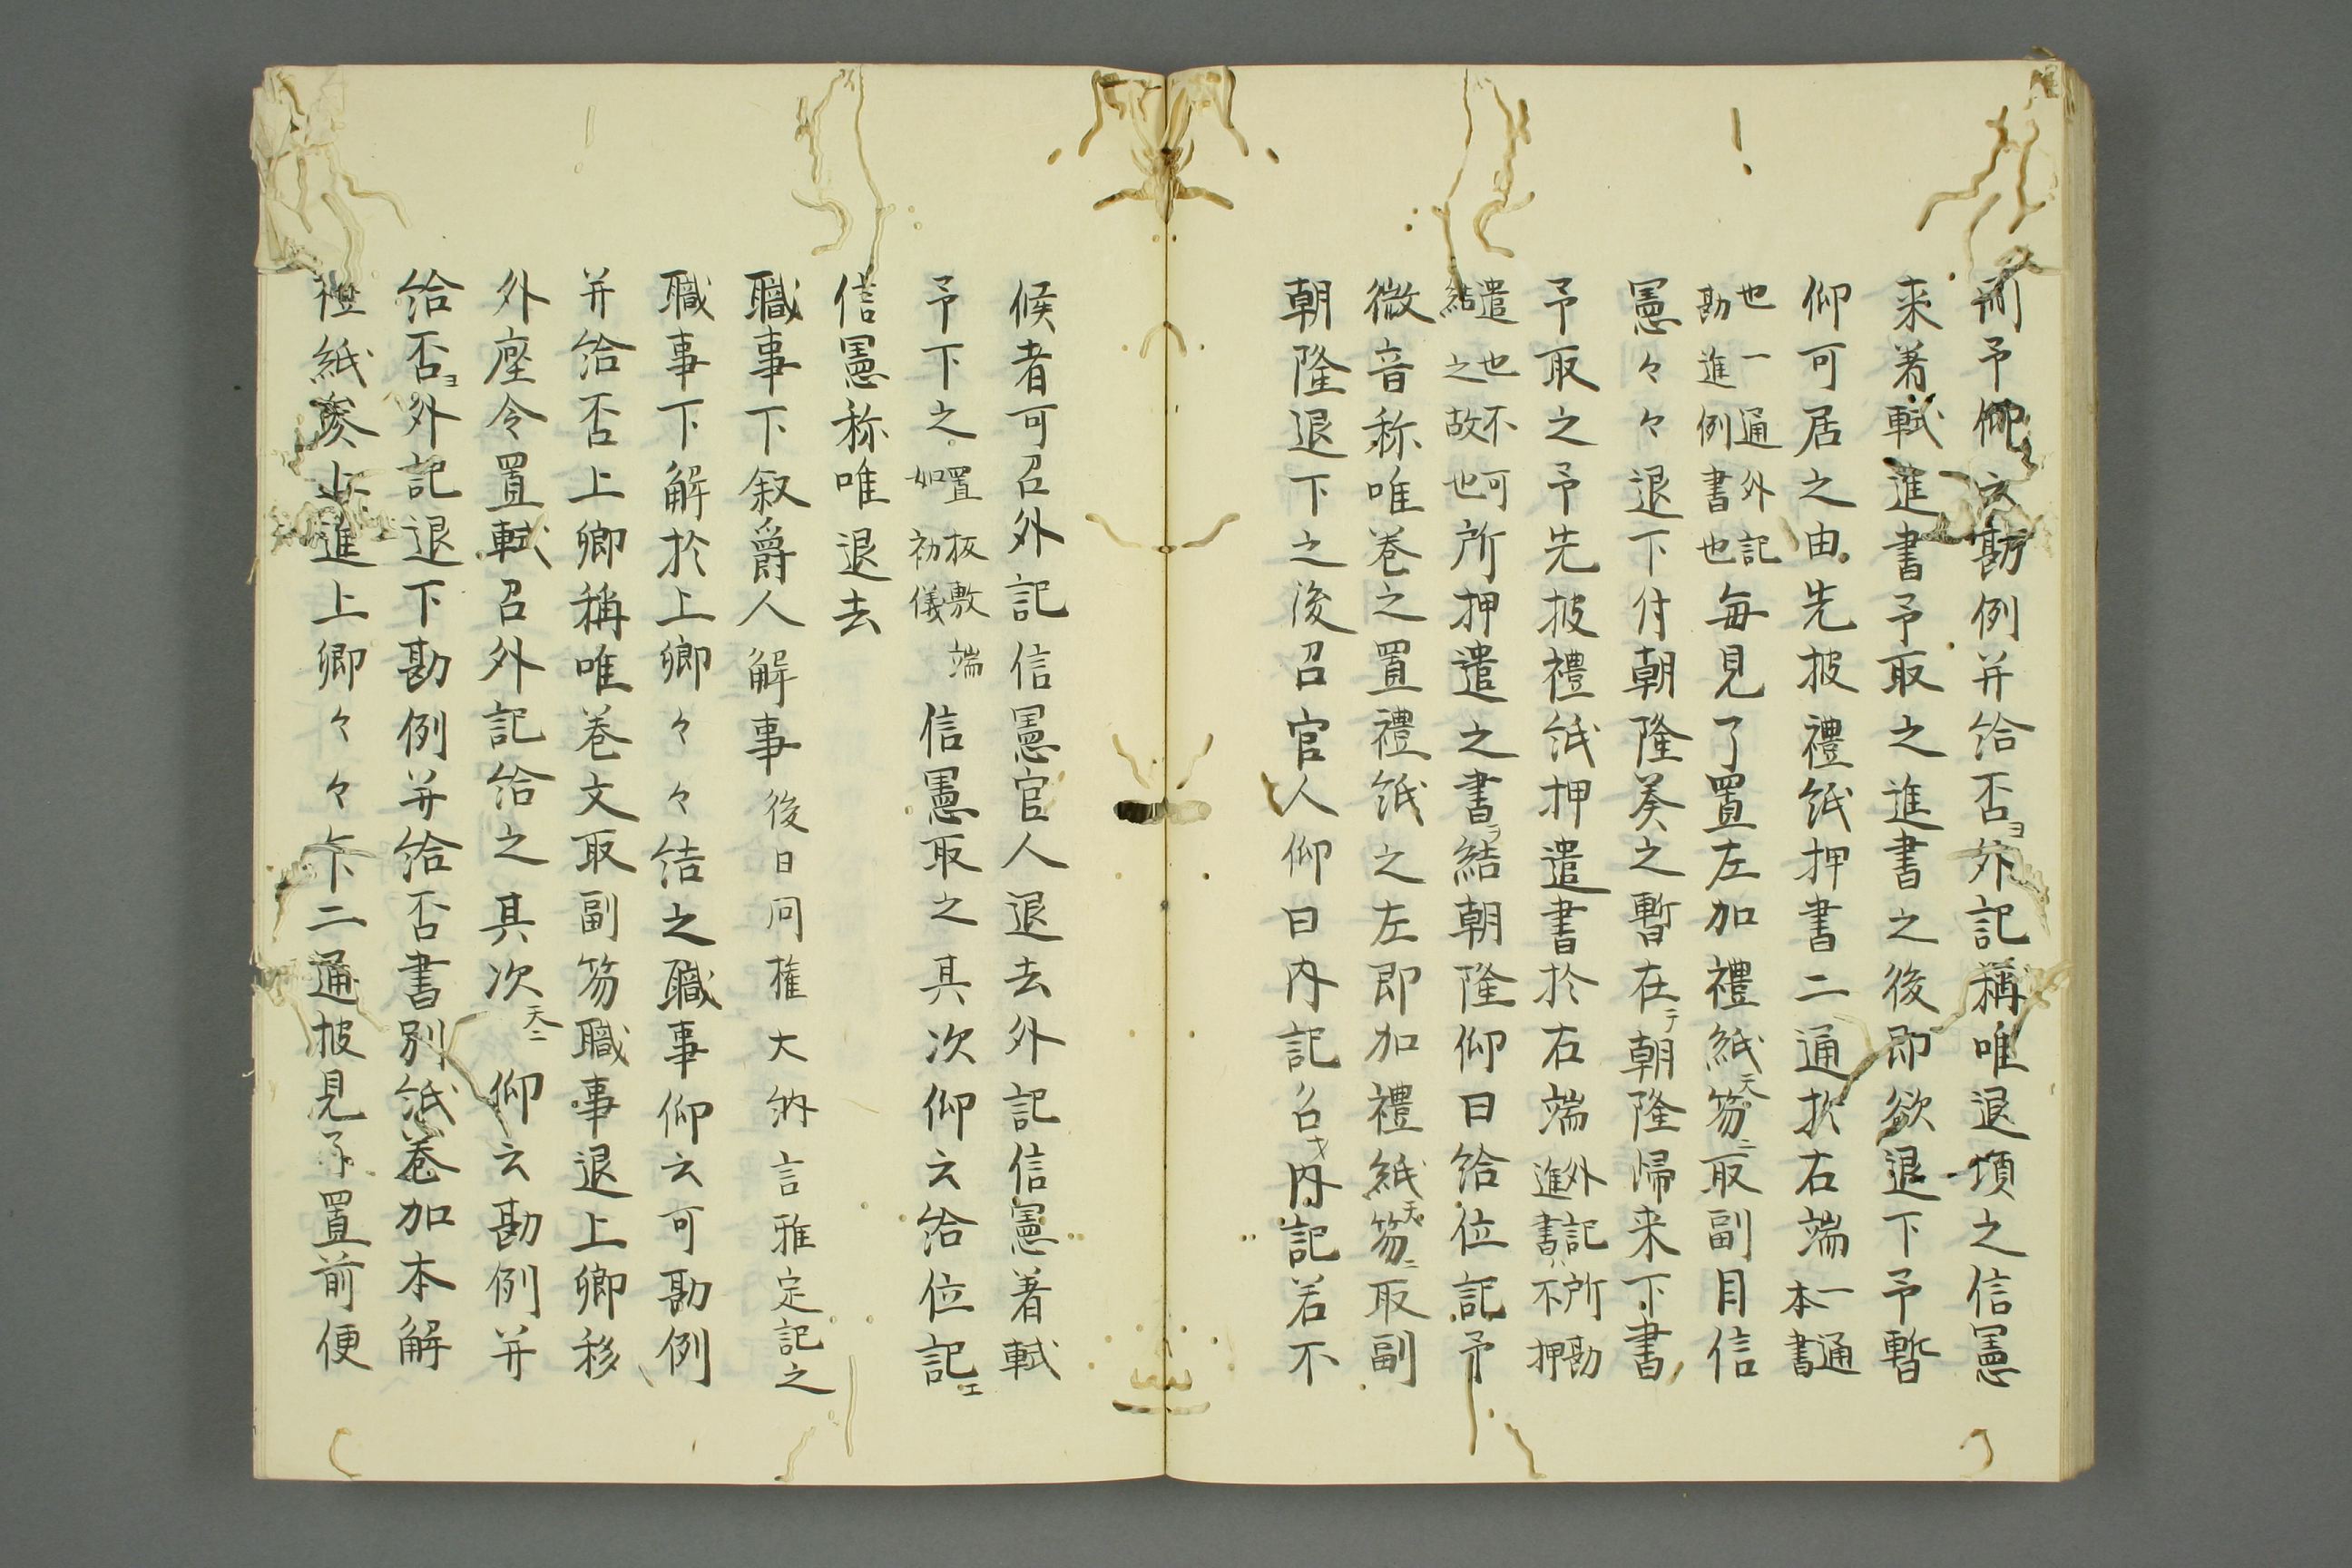 前予仰云勘例并給否ヨ外記稱唯退頃之信憲
来著軾進書予取之進書之後即欲退下予暫
仰可居之由先披禮紙押書二通於右端一通本書
也一通外記勘進例書也毎見了置左加禮紙天笏ニ取副目信
憲々々退下付朝隆奏之暫在テ朝隆帰来下書
予取之予先披禮紙押遣書於右端外記所勘進書ハ不押
遣也不可結之故也所押遣之書ヲ結朝隆仰曰給位記予
微音称唯巻之置禮紙之左即加禮紙天笏ニ取副
朝隆退下之後召官人仰曰内記召才内記若不
候者可召外記信憲官人退去外記信憲著軾
予下之置板敷端如初儀信憲取之其次仰云給位記エ
信憲称唯退去
職事下叙爵人解事後日問権大納言雅定記之
職事下解於上卿々々結之職事仰云可勘例
并給否上卿稱唯巻文取副笏職事退上卿移
外座令置軾召外記給之其次天ニ仰云勘例并
給否ヨ外記退下勘例并給否書別紙巻加本解
禮紙奏上進上卿々々乍二通披見了置前便